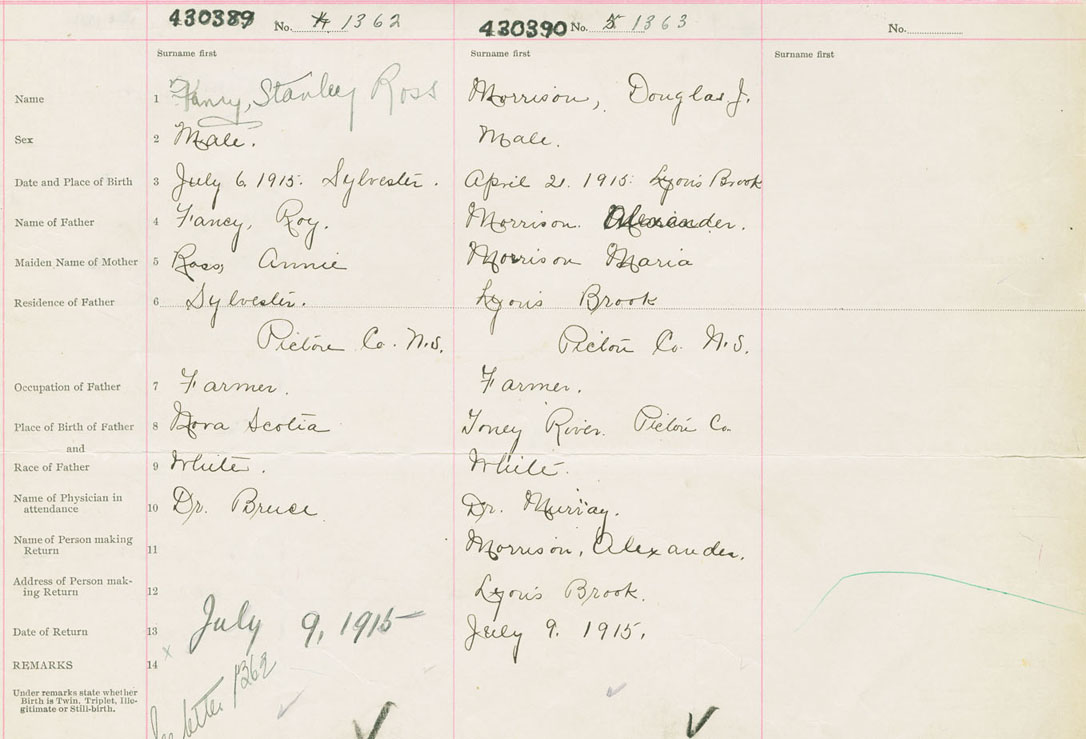 430389 No. 4 1362 430390 No. 5 1363 No.
Surname first Surname first Surname first
Name 1 Fancy, Stanley Ross Morrison, Douglas J.
Sex 2 Male. Male.
Date and Place of Birth 3 July 6. 1915. Sylvester. April 21. 1915. Lyons Brook
Name of Father 4 Fancy, Roy. Morrison. Alexander.
Maiden Name of Mother 5 Ross, Annie Morrison Maria
Residence of Father 6 Sylvester. Lyons Brook
Pictou Co. N.S. Pictou Co. N.S.
Occupation of Father 7 Farmer. Farmer.
Place of Birth of Father 8 Nova Scotia Toney River. Pictou Co.
and
Race of Father 9 White. White.
Name of Physician in
attendance 10 Dr. Bruce Dr. Murray.
Name of Person making
Return 11 Morrison, Alexander.
Address of Person mak-
ing Return 12 Lyons Brook.
Date of Return 13 July 9, 1915 July 9. 1915.
REMARKS 14
See letter 1362
Under remarks state whether
Birth is Twin, Triplet, Ille-
gitimate or Still-birth.